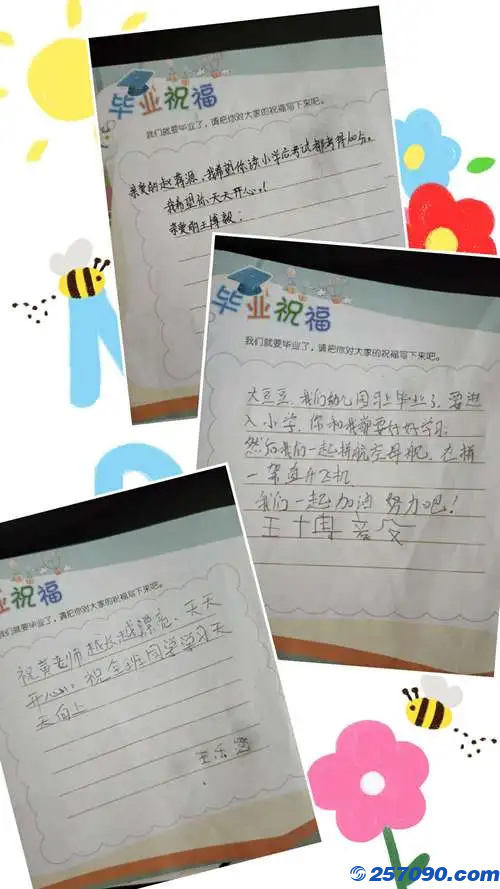 毕业祝福
我们就要毕业了，请把你对大家的祝福写下来吧。
亲爱的赵薛源，我希望你读小学后考试都考得100分。
我希望你天天开心！
亲爱的王博毅：
毕业祝福
我们就要毕业了，请把你对大家的祝福写下来吧。
大豆豆，我们幼儿园马上毕业了，要进
入小学，你和我都要好好学习
然后我们一起拼航空母舰，在拼
一架直升飞机
我们一起加油 努力吧！
王博
业祝福
我们就要毕业了，请把你对大家的祝福写下来吧。
祝黄老师越长越漂亮，天天
开心，祝全班同学学习天
天向上
王乐
257090.com